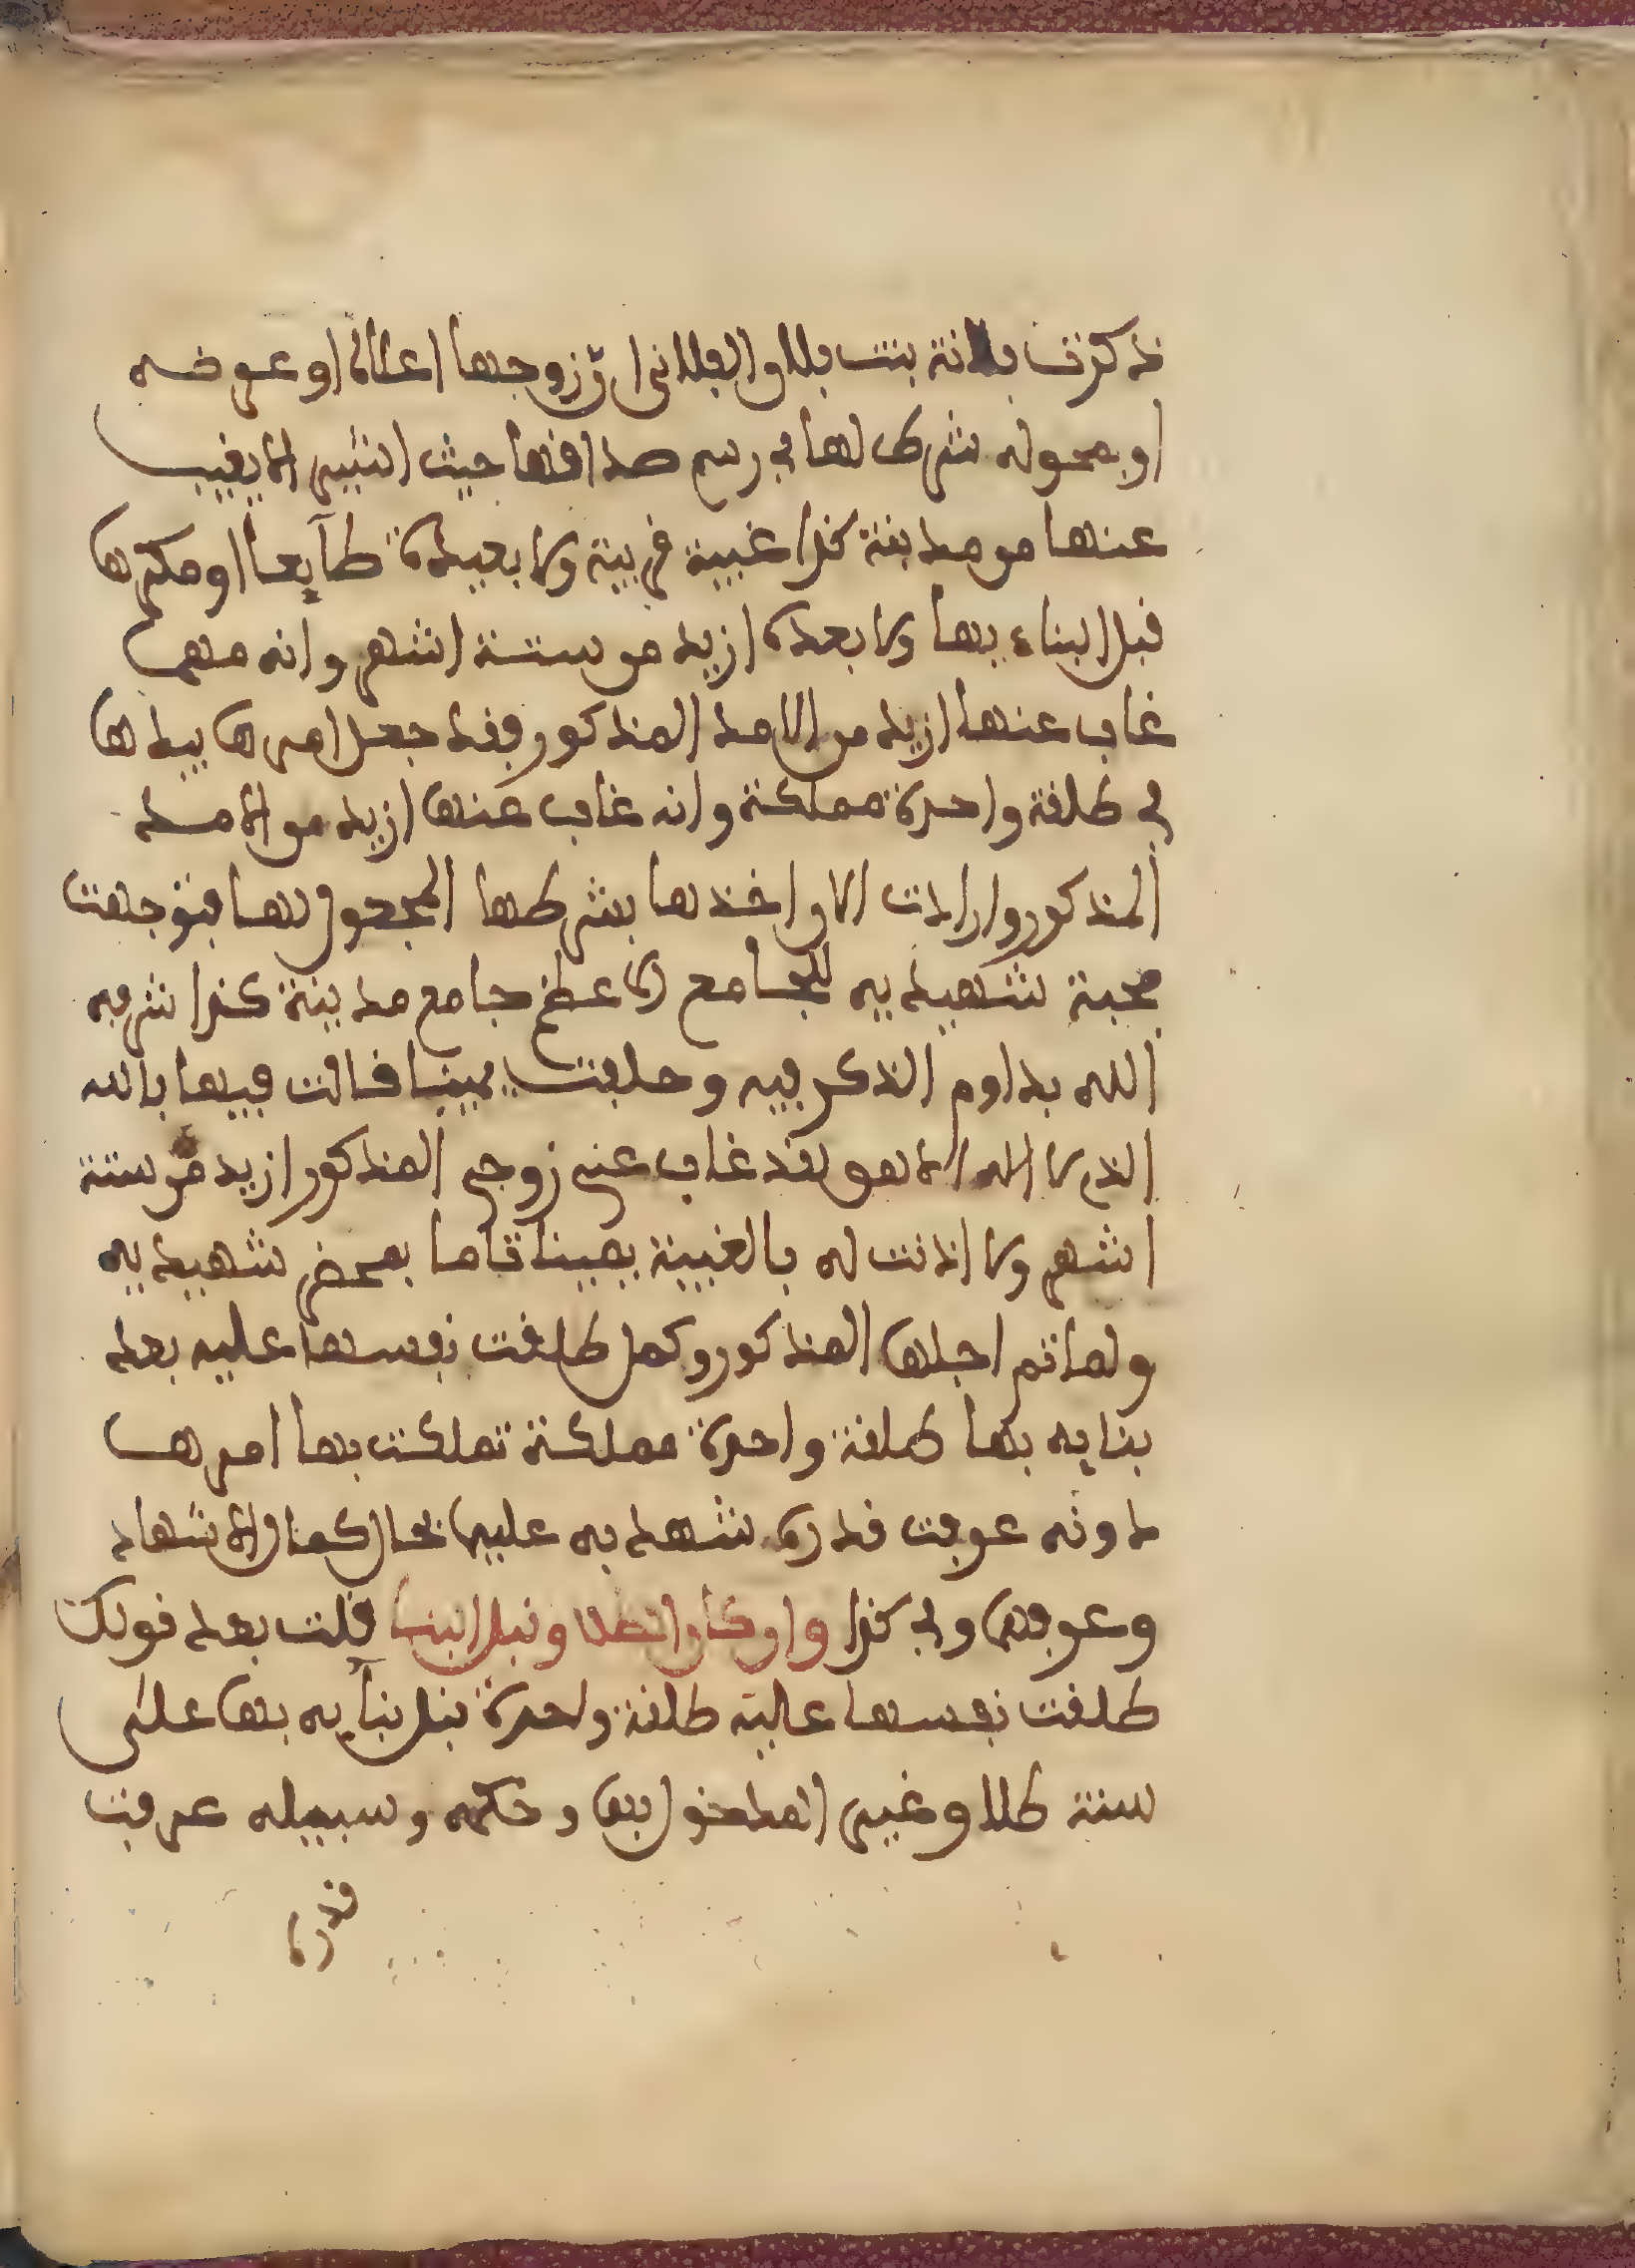 ذكرت فلانة بنت فلان الفلاني ان زوجها اعلاه او عرضه
او بمحوله شرط لها في رسم صداقها حيث اشير الا يغيب
عنها من مدينة كذا غيبة قريبة ولا بعيدة طآيعا او مكرها
قبل البناء بها ولا بعده ازيد من ستة اشهر وانه مهما
غاب عنها ازيد من الامد المذكور فقد جعل امرها بيدها
في طلقة واحدة مملكة وانه غاب عنها ازيد من الامد
المذكور وارادت الان اخذها بشرطها المجعول لها فتوجهت
صحبة شهيديه للجامع الاعظم جامع مدينة كذا شرفه
الله بداوم الذكر فيه وحلفت يمينا قالت فيها بالله
الذي لا اله الا هو لقد غاب عني زوجي المذكور ازيد من ستة
اشهر ولا اذنت له بالغيبة يمينا تاما بمحضر شهيديه
ولما تم اجلها المذكور وكمل طلقت نفسها عليه بعد
بنايه بها طلقة واحدة مملكة تملكت بها امرها
دونه عرفت قدره شهد به عليها بحال كمال الاشهاد
وعرفها وفي كذا وان كان الطلاق قبل البنا قلت بعد قولك
طلقت نفسها عليه طلقة واحدة قبل بنآيه بها على
سنة طلاق غير المدخول بها وحكمه وسبيله عرفت
قدره